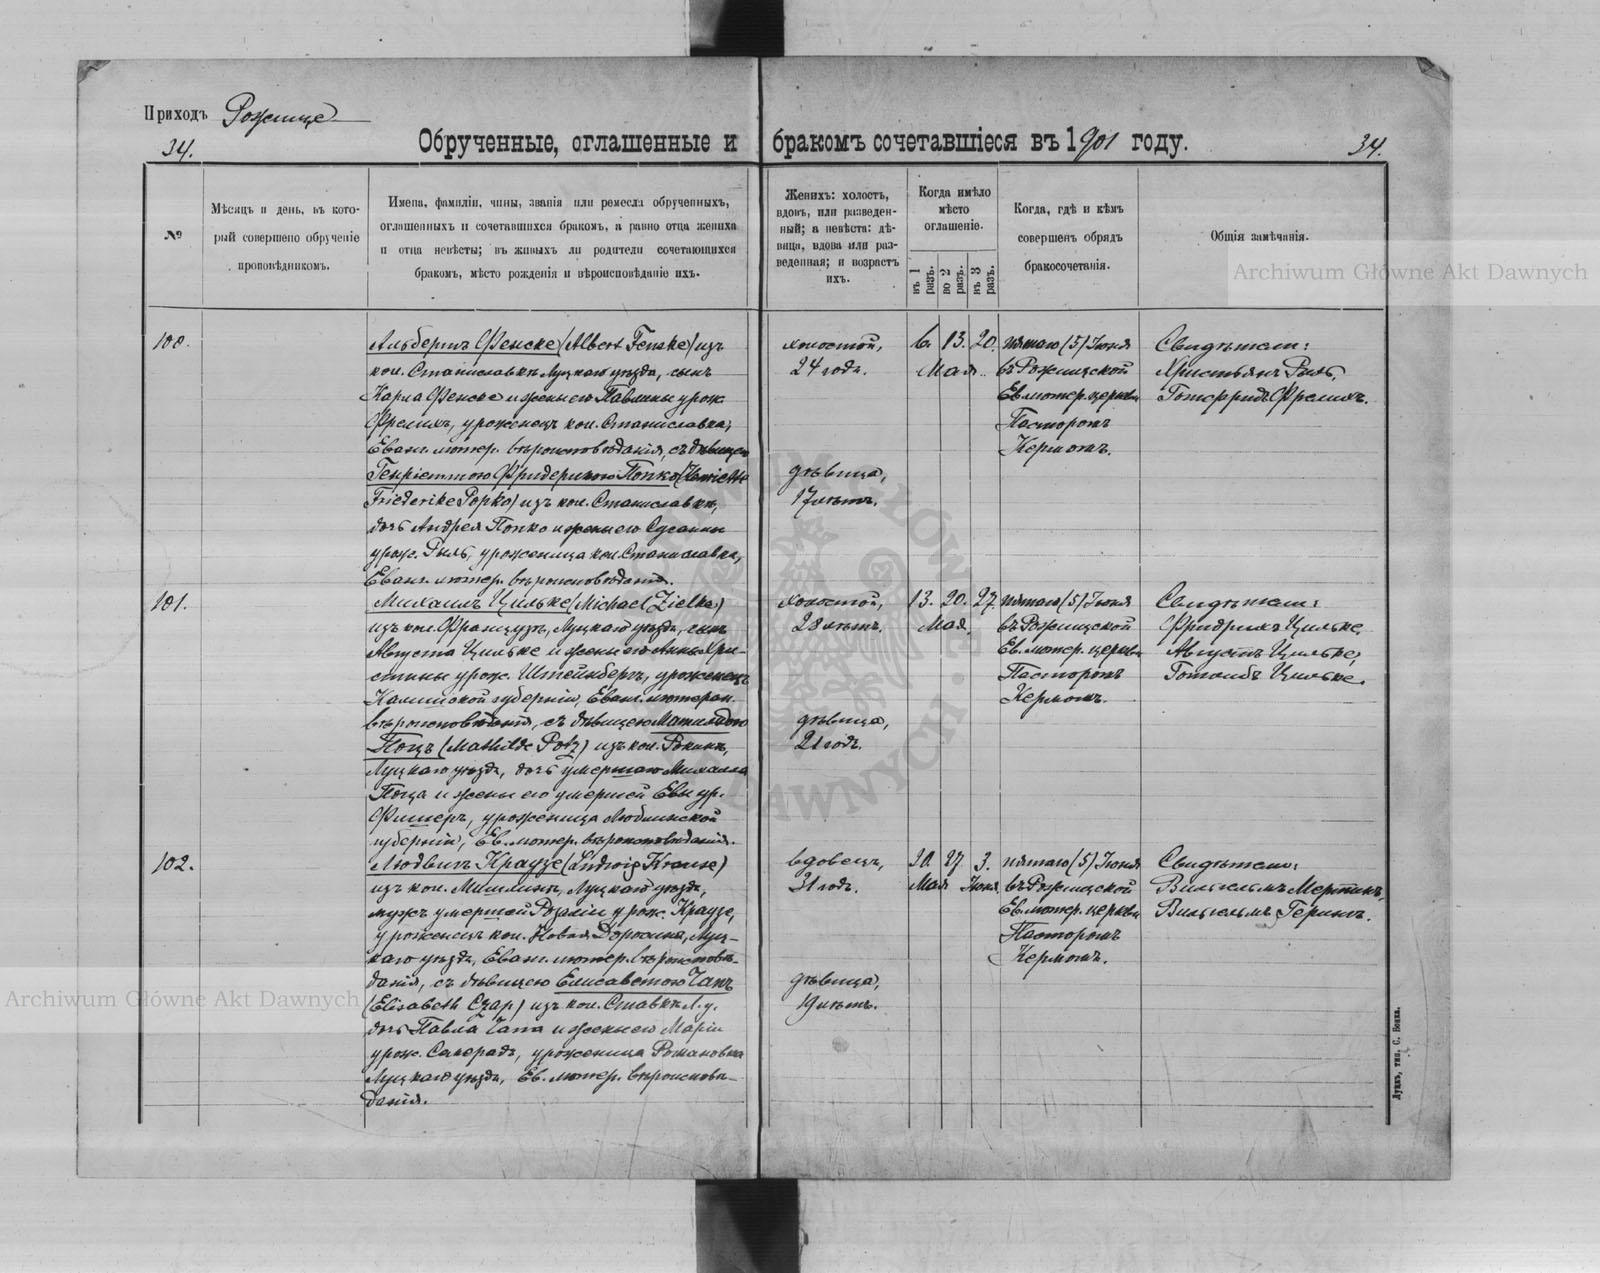 Приходъ Рожище
34.
Обрученные, оглашенные и бракомъ сочетавшіеся въ 1901 году.
34.
№
Мѣсяцъ и день, въ кото-
рый совершено обрученіе
проповѣдникомъ.
Имена, фамиліи, чины, званія или ремесла обрученныхъ,
оглашенныхъ и сочетавшихся бракомъ, а равно отца жениха
и отца невѣсты; въ живыхъ ли родители сочетающихся
бракомъ, мѣсто рожденія и вѣроисповѣданіе ихъ.
Женихъ: холостъ,
вдовъ, или разведен-
ный; а невѣста: дѣ-
вица, вдова или раз-
веденная; и возрастъ
ихъ.
Когда имѣло
мѣсто
оглашеніе:
въ 1 разъ.
во 2 разъ.
въ 3 разъ.
Когда, гдѣ и кѣмъ
совершенъ обрядъ
бракосочетанія.
Общія замѣчанія.
Archiwum Główne Akt Dawnych
100.
Альбертъ Фенске (Albert Fenske) изъ
кол. Станиславка Луцкаго уѣзда, сынъ
Карла Фенске и жены его Павлины урож.
Фрелихъ, уроженецъ кол. Станиславка,
Еванг. лютер. вѣроисповѣданія, съ дѣвицею
Генріеттою Фридерикою Попко (Henriette
Friederike Popko) изъ кол. Станиславка,
дочь Андрея Попко и жены его Сусанны
урож. Рыль, уроженица кол. Станиславка,
Еванг. лютер. вѣроисповѣданія.
холостой,
24 годъ.
дѣвица,
17 лѣтъ.
6. 13. 20.
Мая.
пятаго (5) Іюня
въ Рожищской
Ев. лютер. церкви
Пасторомъ
Кермомъ.
Свидѣтели:
Христьянъ Рыль,
Готфридъ Фрелихъ.
101.
Михаилъ Цильке (Michael Zielke)
изъ кол. Луцкаго уѣзда, сынъ
Августа Цильке и жены его Анны Хри-
стины урож. Штейнбергъ, уроженецъ
Калишской губерніи, Еванг. лютеран.
вѣроисповѣданія, съ дѣвицею Матильдою
Поцъ (Mathilde Potz) изъ кол. Рокини,
Луцкаго уѣзда, дочь умершаго Михаила
Поца и жены его умершей Евы ур.
Фишеръ, уроженица Люблинской
губерніи, Ев. лютер. вѣроисповѣданія.
холостой,
28 лѣтъ.
дѣвица,
21 годъ.
13. 20. 27.
Мая.
пятаго (5) Іюня
въ Рожищской
Ев. лютер. церкви
Пасторомъ
Кермомъ.
Свидѣтели:
Фридрихъ Цильке,
Августъ Цильке,
Готлибъ Цильке.
102.
Людвигъ Краузе (Ludwig Krause)
изъ кол. Луцкаго уѣзда,
мужъ умершей Розаліи урож. Краузе,
уроженецъ кол. Новая Доросина, Луц-
каго уѣзда, Еванг. лютер. вѣроисповѣ-
данія, съ дѣвицею Елисаветою Чапъ
(Elisabeth Czap.) изъ кол. Ставки Л. у.
дочь Павла Чапа и жены его Маріи
урож. уроженица Романовка
Луцкаго уѣзда, Ев. лютер. вѣроисповѣ-
данія.
вдовецъ,
31 годъ.
дѣвица,
19 лѣтъ.
20. 27. 3.
Мая Іюня
пятаго (5) Іюня
въ Рожищской
Ев. лютер. церкви
Пасторомъ
Кермомъ.
Свидѣтели:
Вильгельмъ Мертинъ,
Вильгельмъ Герингъ.
Archiwum Główne Akt Dawnych
Луцкъ, тип. С. Бонка.